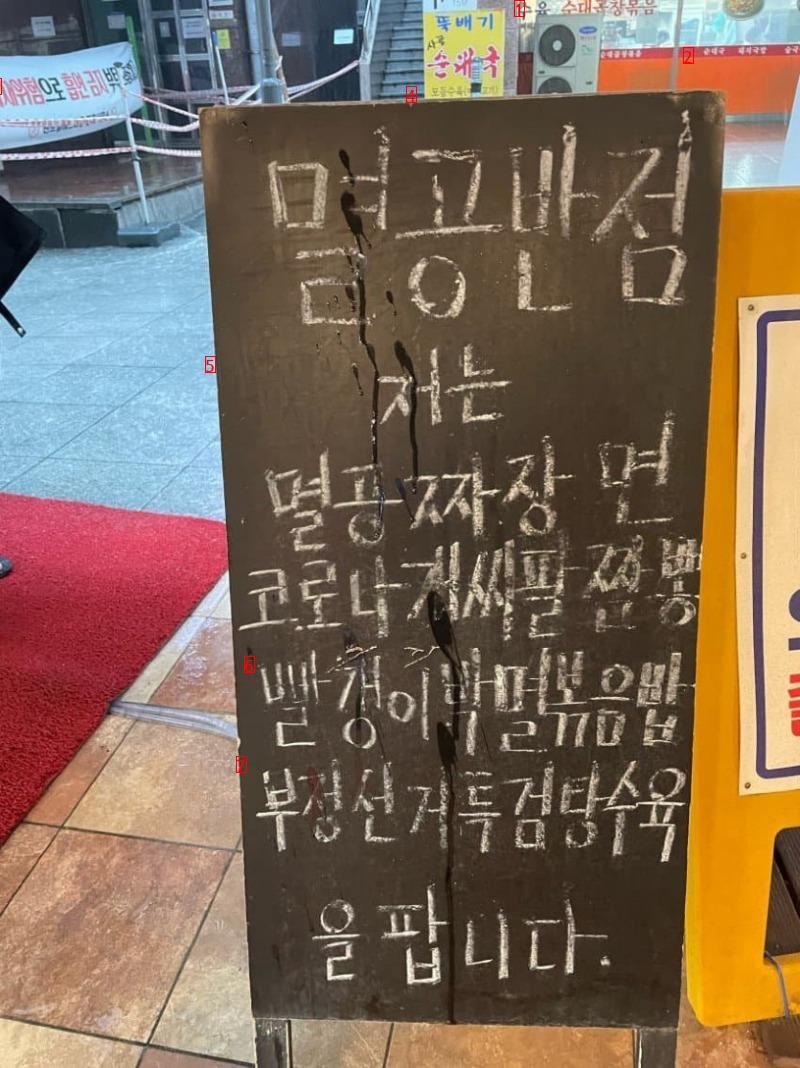 수육 순대곱창볶음
뚝배기
순대국
순대국 돼지국밥
멸공반점
저는
멸공짜장면
코로나개씨팔짬뽕
빨갱이박멸볶음밥
부정선거특검탕수육
을팝니다.